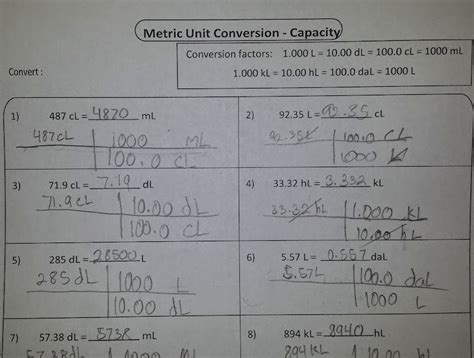 Metric Unit Conversion - Capacity
Conversion factors: 1.000 L = 10.00 dL = 100.0 cL = 1000 mL
1.000 kL = 10.00 hL = 100.0 daL = 1000 L
Convert :
1) 487 cL = 4870 mL
487cL 1000 mL
100.0 cL
2) 92.35 L = 92.35 cL
92.35L 100.0 cL
1000
3) 71.9 cL = 7.19 dL
71.9cL 10.00 dL
100.0 cL
4) 33.32 hL = 3.332 kL
33.32 hL 1.000 kL
10.00 hL
5) 285 dL = 28500 L
285 dL 1000 L
10.00 dL
6) 5.57 L = 0.557 daL
5.57L 100.0 daL
1000 L
7) 57.38 dL = 5738 mL
57.38dL
8) 894 kL = 8940 hL
894kL